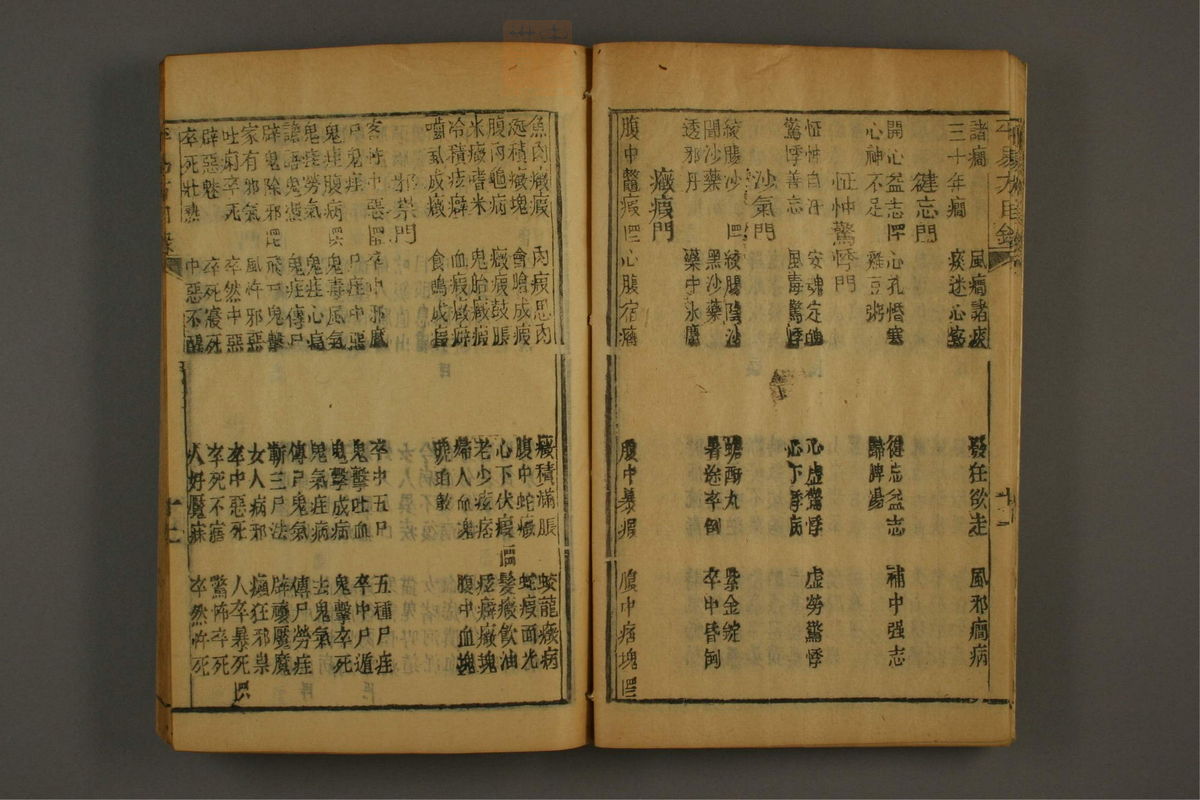 諸癎 風癎諸痰 發狂欲走 風邪癎病
三十年癎 痰迷心竅
健忘門
開心益志 四 心孔惛塞 健忘益志 補中强志
心神不足 雞豆粥 歸脾湯
怔忡驚悸門
怔忡自汗 安魂定魄 心虛驚悸 虛勞驚悸
驚悸善忘 風毒驚悸 心下悸病
沙氣門
絞腸沙 四 絞腸陰沙 蟾酥丸 紫金錠
開沙藥 黑沙藥 暑途卒倒 卒中昏倒
透邪丹 藥中永魔
癥瘕門
腹中鱉瘕 四 心腹宿癥 腹中暴瘕 腹中痞塊 四
魚肉癥瘕 肉瘕思肉 癥積滿脹 蛟龍瘕病
涎積癥塊 食噲成瘕 腹中蛇癥 蛇瘕面光
腹內龜病 癥瘕鼓脹 心下伏瘕 四 髮癥飲油
米癥嗜米 鬼胎癥瘕 老少痃痞 痃癖癥塊
冷積痃癖 血瘕癥癖 婦人血塊 腹中血塊
嚙虱成癥 食鴨成瘕 琥珀散
邪祟門
客忤中惡 四 卒中邪魘 卒中五尸 五種尸疰
尸鬼疰 尸疰中惡 鬼擊吐血 卒中尸遁
鬼疰腹病 四 尸毒風氣 鬼擊成病 鬼擊卒死
鬼疰勞氣 鬼疰心痛 鬼氣疰病 去鬼氣
譫語鬼 鬼疰傳尸 傳尸鬼氣 傳尸勞疰
辟鬼除邪 四 飛尸鬼擊 斬三尸法 辟禳魘魔
家有邪氣 風忤邪惡 女人病邪 癲狂邪祟
吐痢卒死 卒然中惡 卒中惡死 人卒暴死 四
辟惡魅 卒死寢死 卒死不寤 驚怖卒死
卒死壯熱 中惡不醒 人好魘寐 卒然忤死